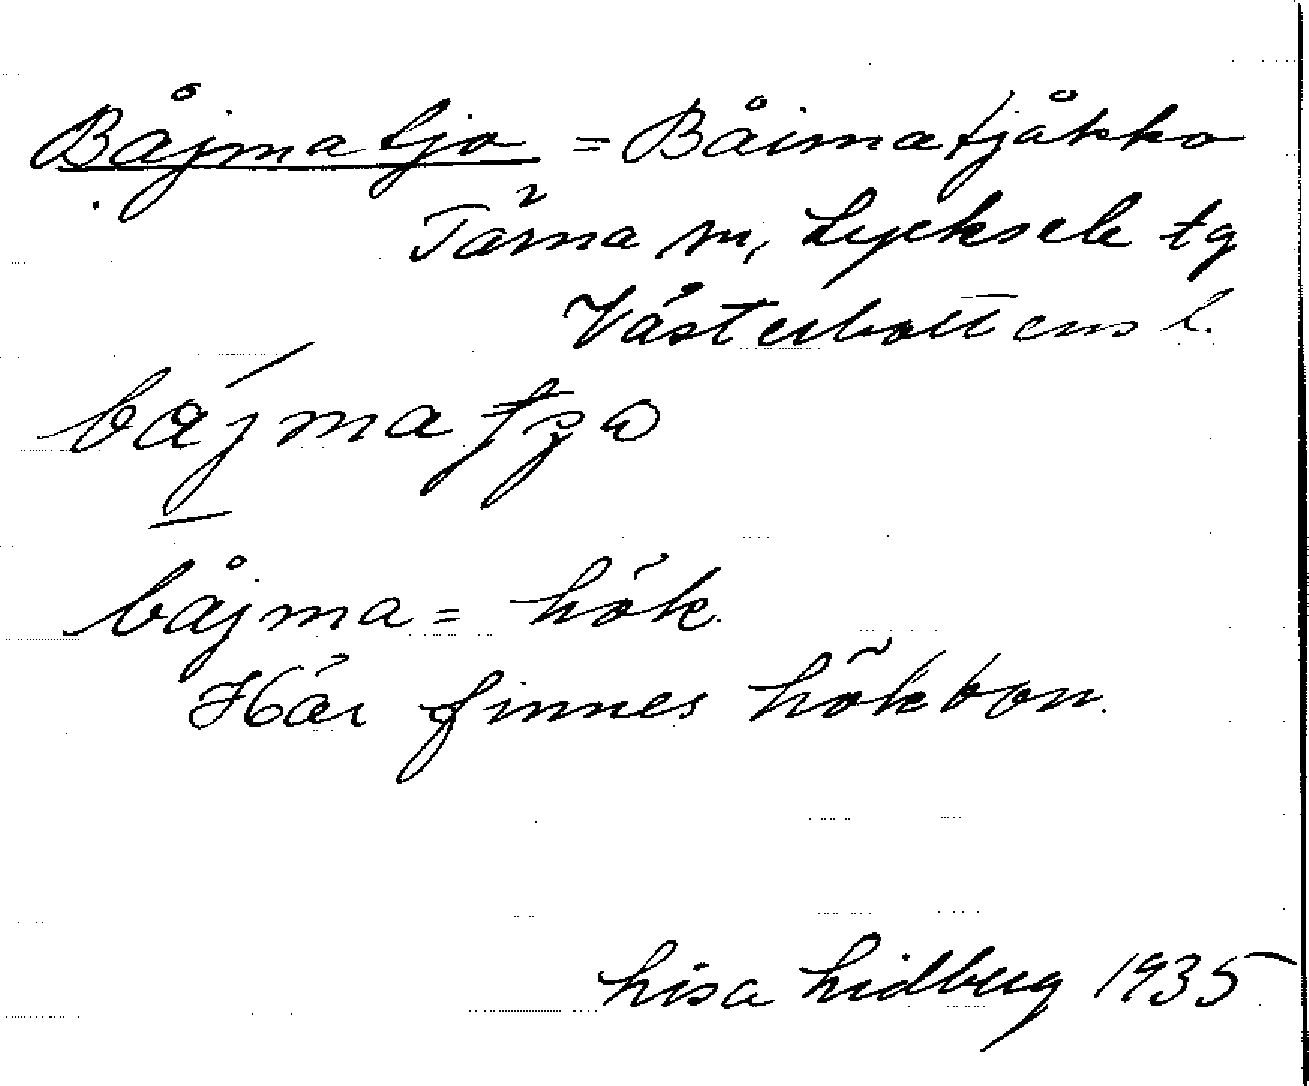 Båjmatjo = Båimatjåkko
Tärna sn, Lycksele tg
Västerbottens l.
båjma = hök.
Här finnes hökbon.
Lisa Lidberg 1935